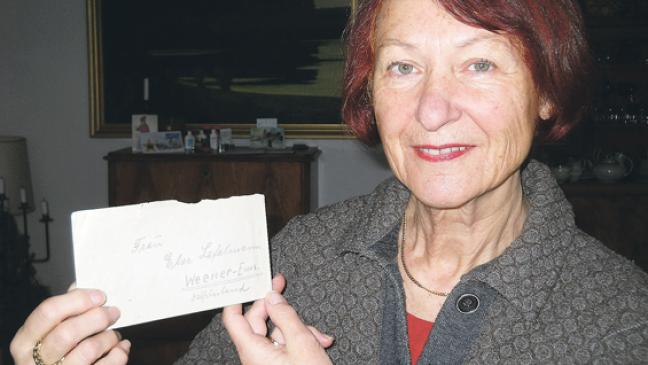 Frau
Else Lexelmann
Weener-Ems
Ostfriesland